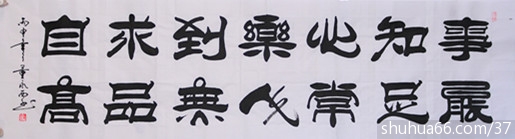 事能
知足
心常
樂人
到無
求品
自髙
丙申年
shuhua66.com/37